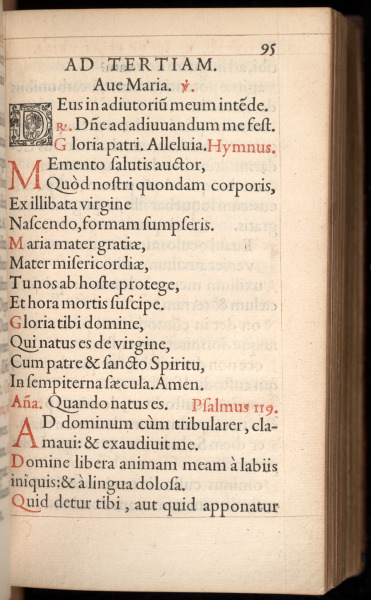 95
AD TERTIAM.
Aue Maria. ℣.
DEus in adiutoriũ meum intẽde.
℟. Dñe ad adiuuandum me fest.
Gloria patri. Alleluia. Hymnus.
MEmento salutis auctor,
Quòd nostri quondam corporis,
Ex illibata virgine
Nascendo, formam sumpseris.
Maria mater gratiæ,
Mater misericordiæ,
Tu nos ab hoste protege,
Et hora mortis suscipe.
Gloria tibi domine,
Qui natus es de virgine,
Cum patre & sancto Spiritu,
In sempiterna sæcula. Amen.
Aña. Quando natus es. Psalmus 119.
AD dominum cùm tribularer, cla-
maui: & exaudiuit me.
Domine libera animam meam à labiis
iniquis: & à lingua dolosa.
Quid detur tibi, aut quid apponatur